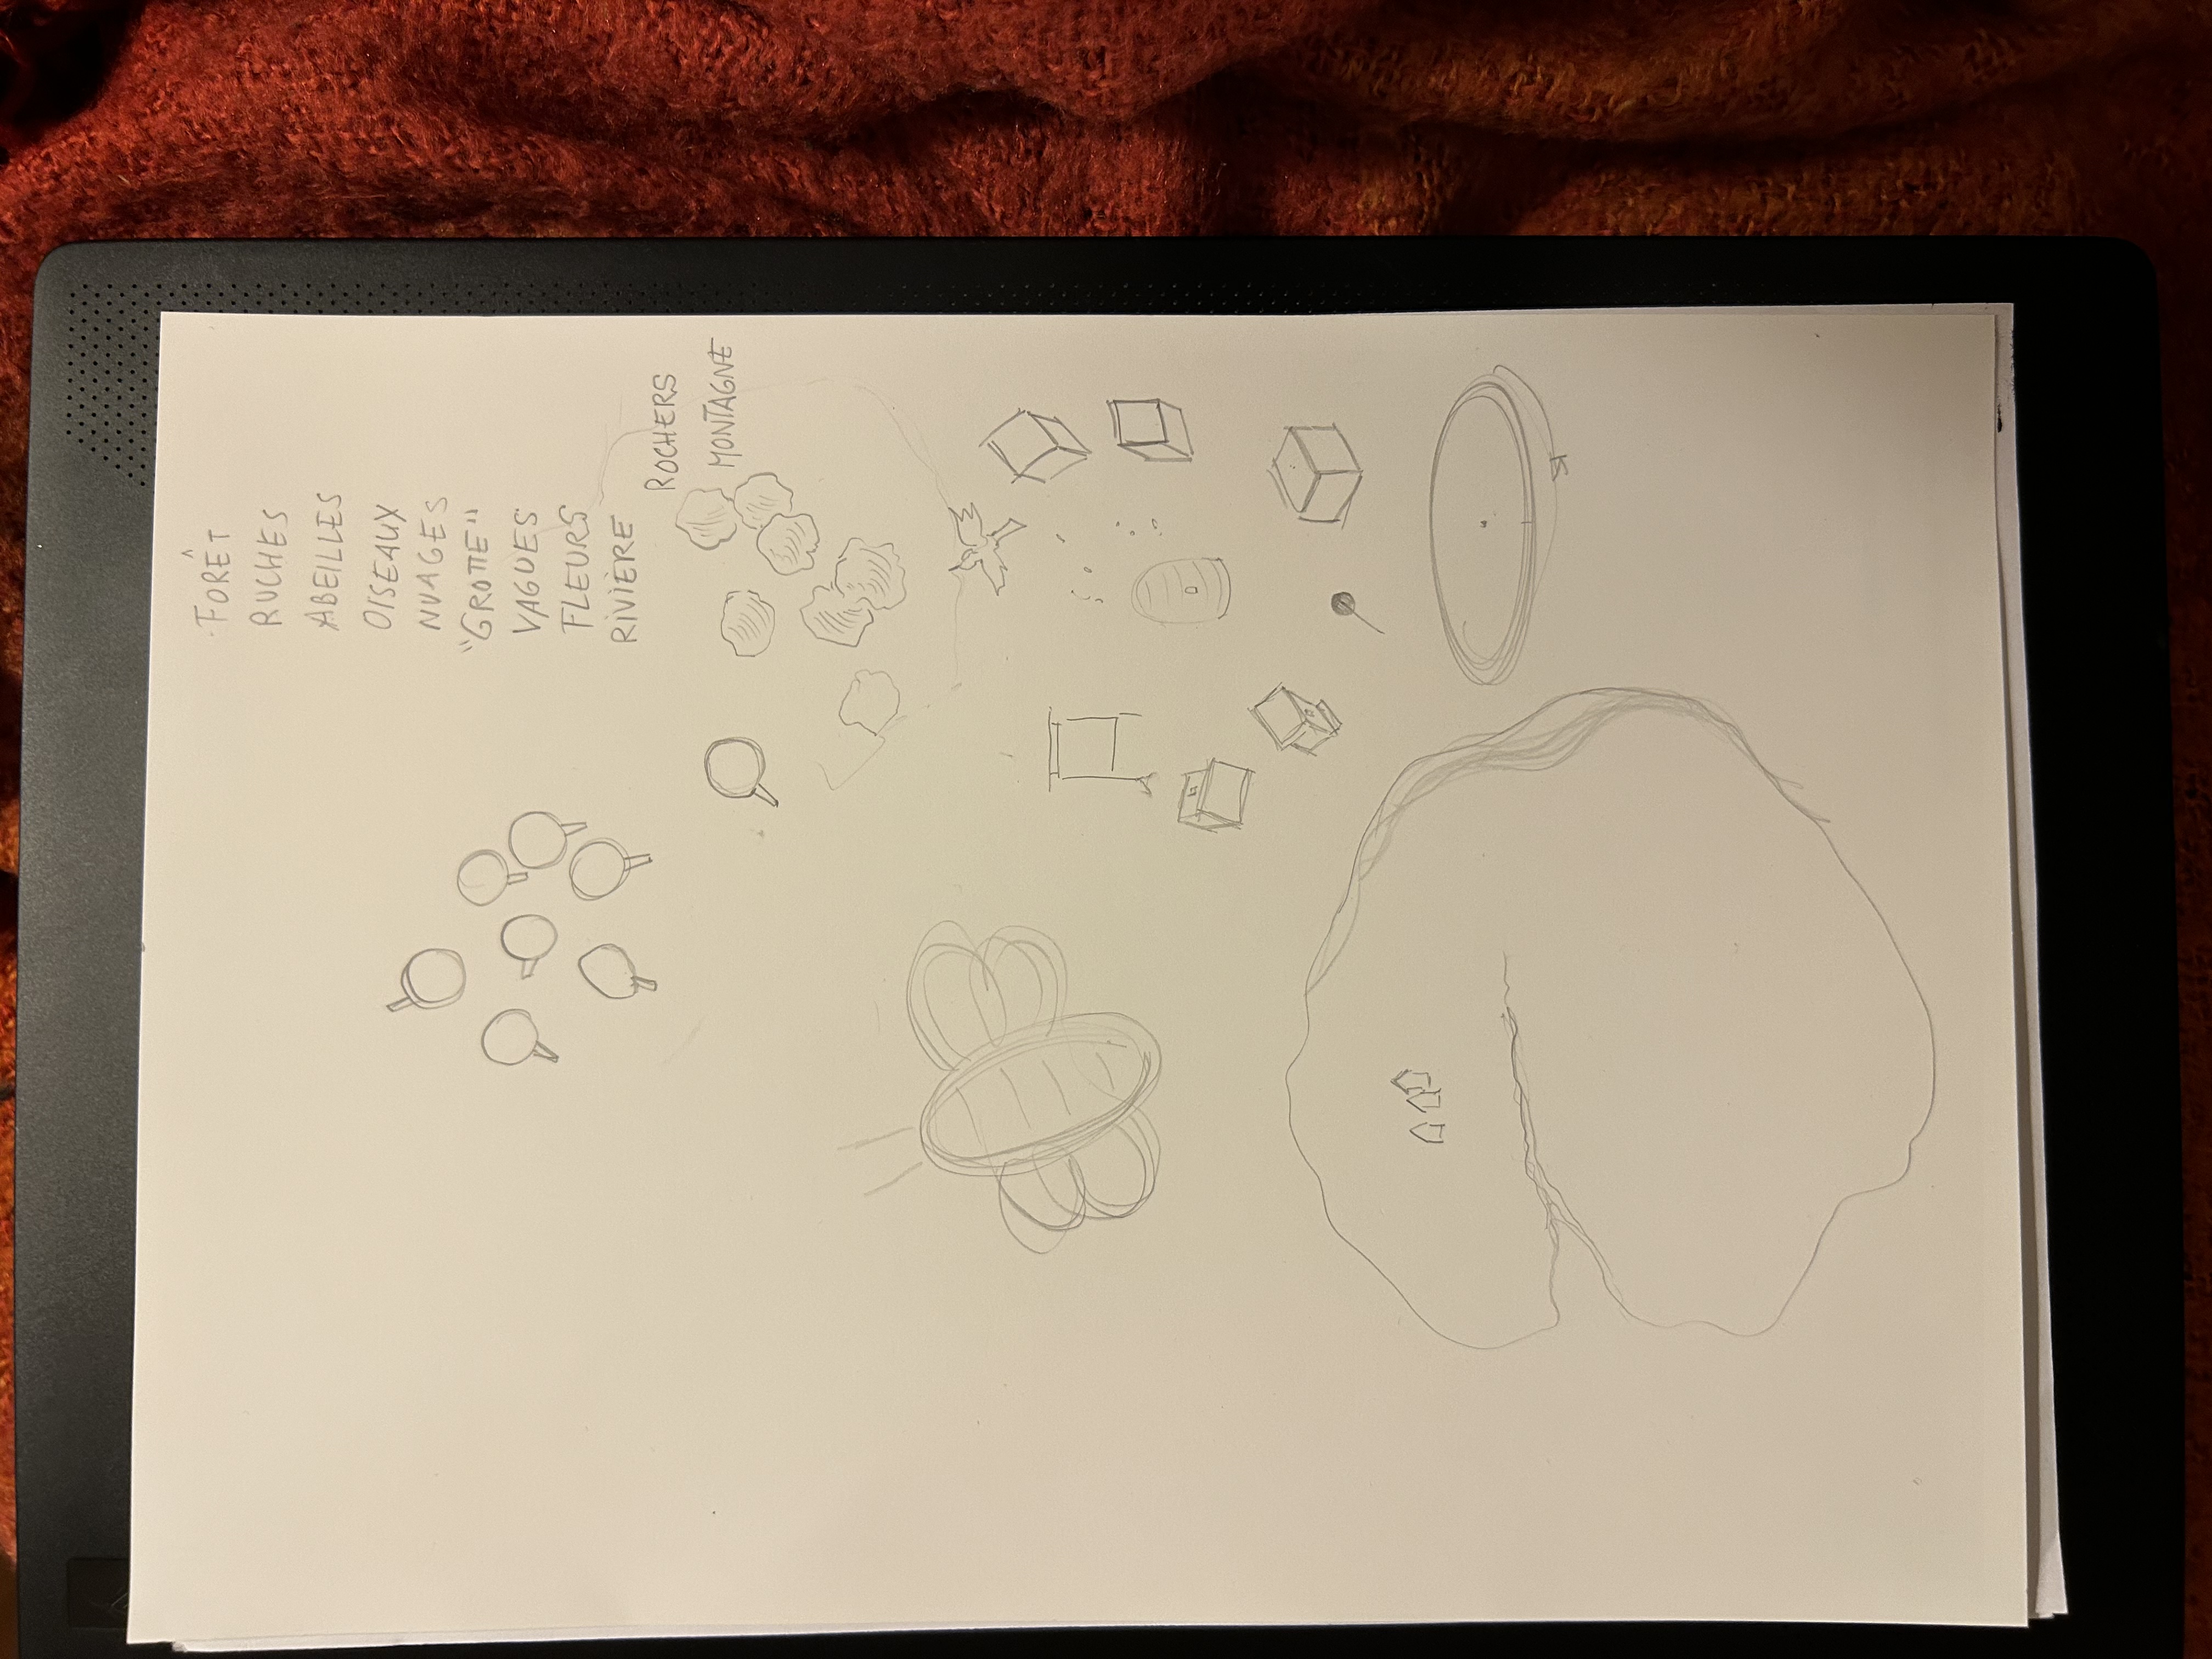 FORÊT
RUCHES
ABEILLES
OISEAUX
NUAGES
"GROTTE"
VAGUES
FLEURS
RIVIÈRE
ROCHERS
MONTAGNE